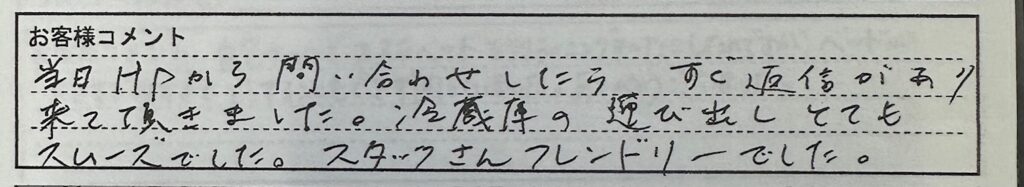 お客様コメント
当日HPから問い合わせしたらすぐ返信があり
来て頂きました。冷蔵庫の運び出しとても
スムーズでした。スタッフさんフレンドリーでした。